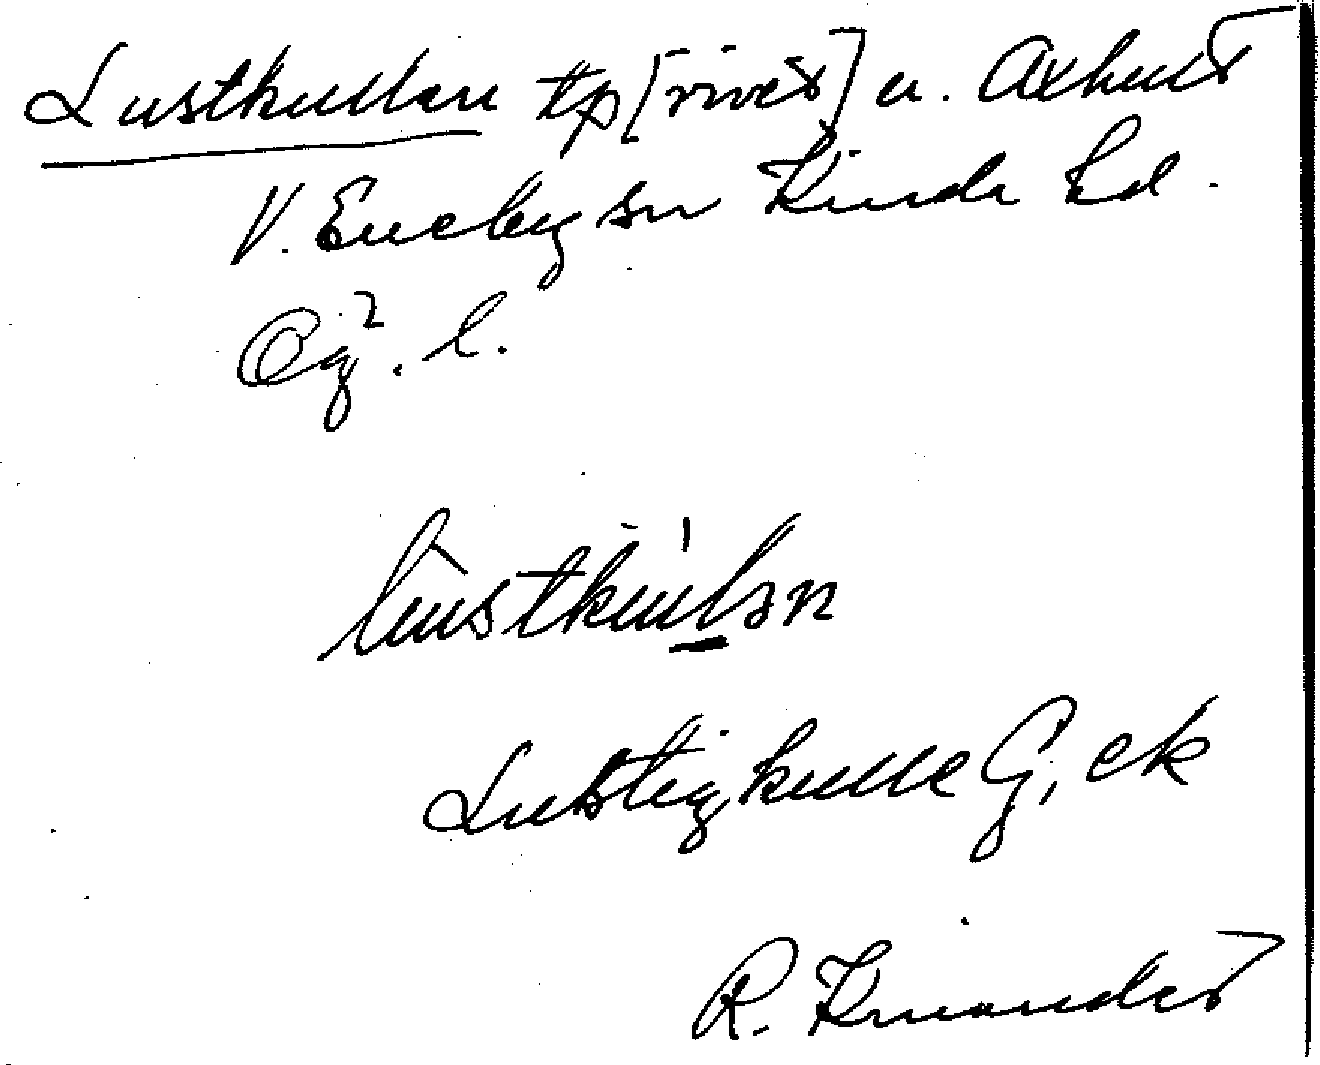 Lustkullen tp [rivet] u. Axhult
V. Eneby sn Kinda hd.
Ög². l.
lustkullan
Lustigkulle G, ek
R. Kinander